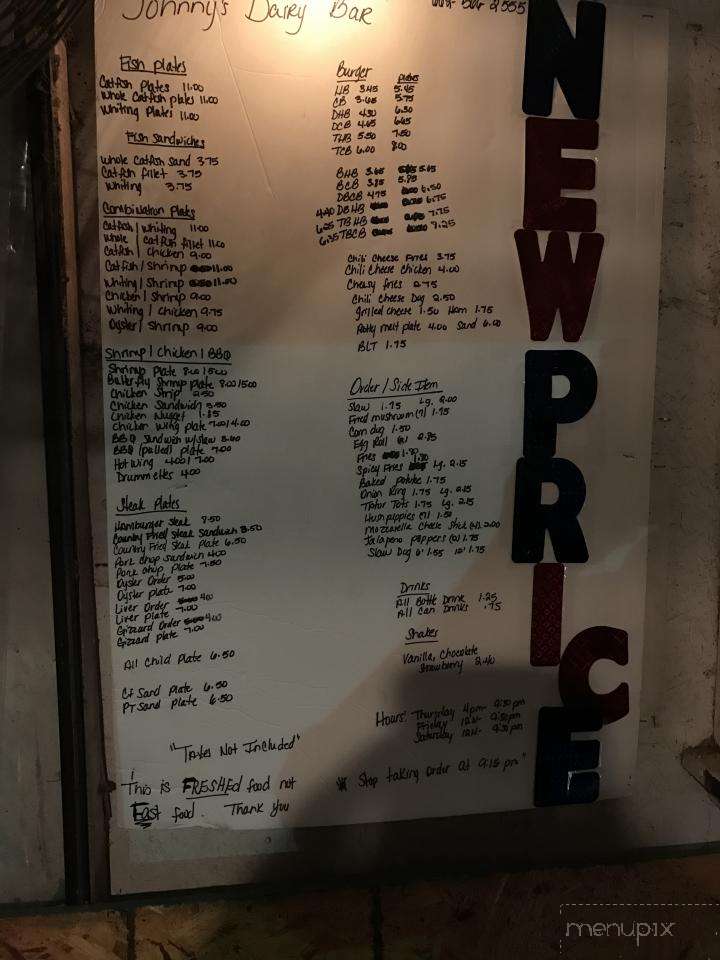 Johnny's Dairy Bar
Fish plates
Catfish Plates 11.00
Whole Catfish plates 11.00
Whiting Plates 11.00
Fish Sandwiches
Whole Catfish Sand 3.75
Catfish fillet 3.75
Whiting 3.75
Combination Plates
Catfish / Whiting 11.00
Whole / catfish fillet 11.00
Catfish / Chicken 9.00
Catfish / Shrimp 11.00
Whiting / Shrimp 11.00
Chicken / Shrimp 9.00
Whiting / Chicken 9.75
Oyster / Shrimp 9.00
Shrimp / Chicken / BBQ
Shrimp Plate 8.00 / 5.00
Butterfly Shrimp Plate 8.00 / 5.00
Chicken Strip 2.50
Chicken Sandwich 3.50
Chicken Nugget 1.85
Chicken wing plate 7.00 / 4.00
BBQ Sandwich w/slaw 3.60
BBQ (pulled) plate 7.00
Hot wing 4.00 / 7.00
Drummettes 4.00
Steak Plates
Hamburger Steak 7.50
Country Fried Steak Sandwich 3.50
Country Fried Steak Plate 6.50
Pork chop Sandwich 4.00
Pork chop Plate 7.50
Oyster Order 5.00
Oyster plate 7.00
Liver Order 4.00
Liver plate 7.00
Gizzard Order 4.00
Gizzard plate 7.00
All Child Plate 6.50
CF Sand Plate 6.50
PT Sand Plate 6.50
"Taxes Not Included"
This is FRESHed food not
East food. Thank you
Burger plates
HB 3.45 5.45
CB 3.65 5.75
DHB 4.30 6.30
DCB 4.65 6.65
THB 5.50 7.50
TCB 6.00 8.00
BHB 3.65 5.65
BCB 3.85 5.85
DBCB 4.75 6.50
4.40 DBHB 6.75
6.25 TBHB 7.75
6.35 TBCB 7.25
Chili Cheese Fries 3.75
Chili Cheese Chicken 4.00
Cheesy fries 2.75
Chili Cheese Dog 2.50
Grilled cheese 1.50 Ham 1.75
Patty melt plate 4.00 Sand 6.00
BLT 1.75
Order / Side Item
Slaw 1.75 Lg. 2.00
Fried mushroom (7) 1.75
Corn dog 1.50
Egg Roll 2.25
Fries 1.30
Spicy Fries 1.30 Lg. 2.15
Baked potato 1.75
Onion Ring 1.75 Lg. 2.15
Tator Tots 1.75 Lg. 2.15
Hushpuppies 1.50
Mozzarella Cheese Stick (4) 2.00
Jalapeno peppers 1.75
Slaw Dog 6" 1.55 12" 1.75
Drinks
All Bottle Drink 1.25
All Can Drinks .75
Shakes
Vanilla, Chocolate
Strawberry 2.40
Hours: Thursday 4pm - 9:30 pm
Friday
Saturday
* Stop taking order at 9:15 pm"
NEW PRICE
menupix